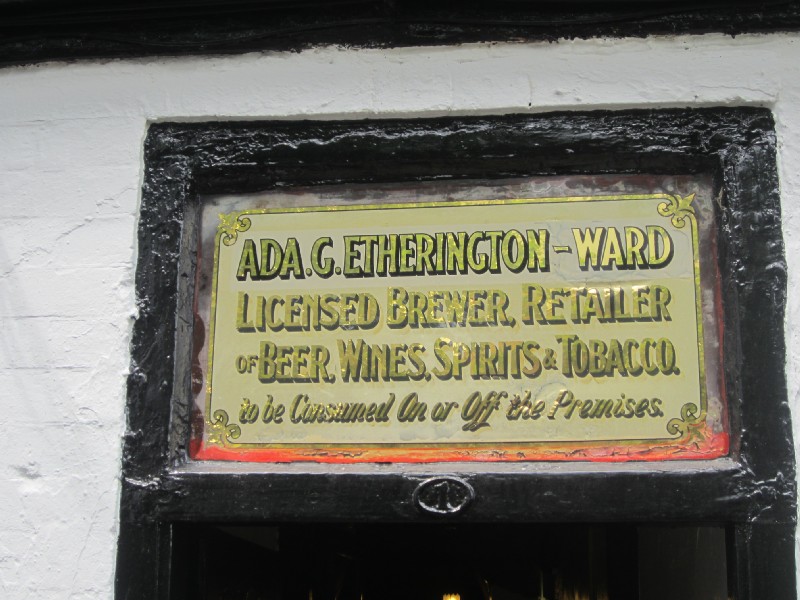 ADA.G.ETHERINGTON-WARD
LICENSED BREWER, RETAILER
OF BEER, WINES, SPIRITS & TOBACCO.
to be Consumed On or Off the Premises.